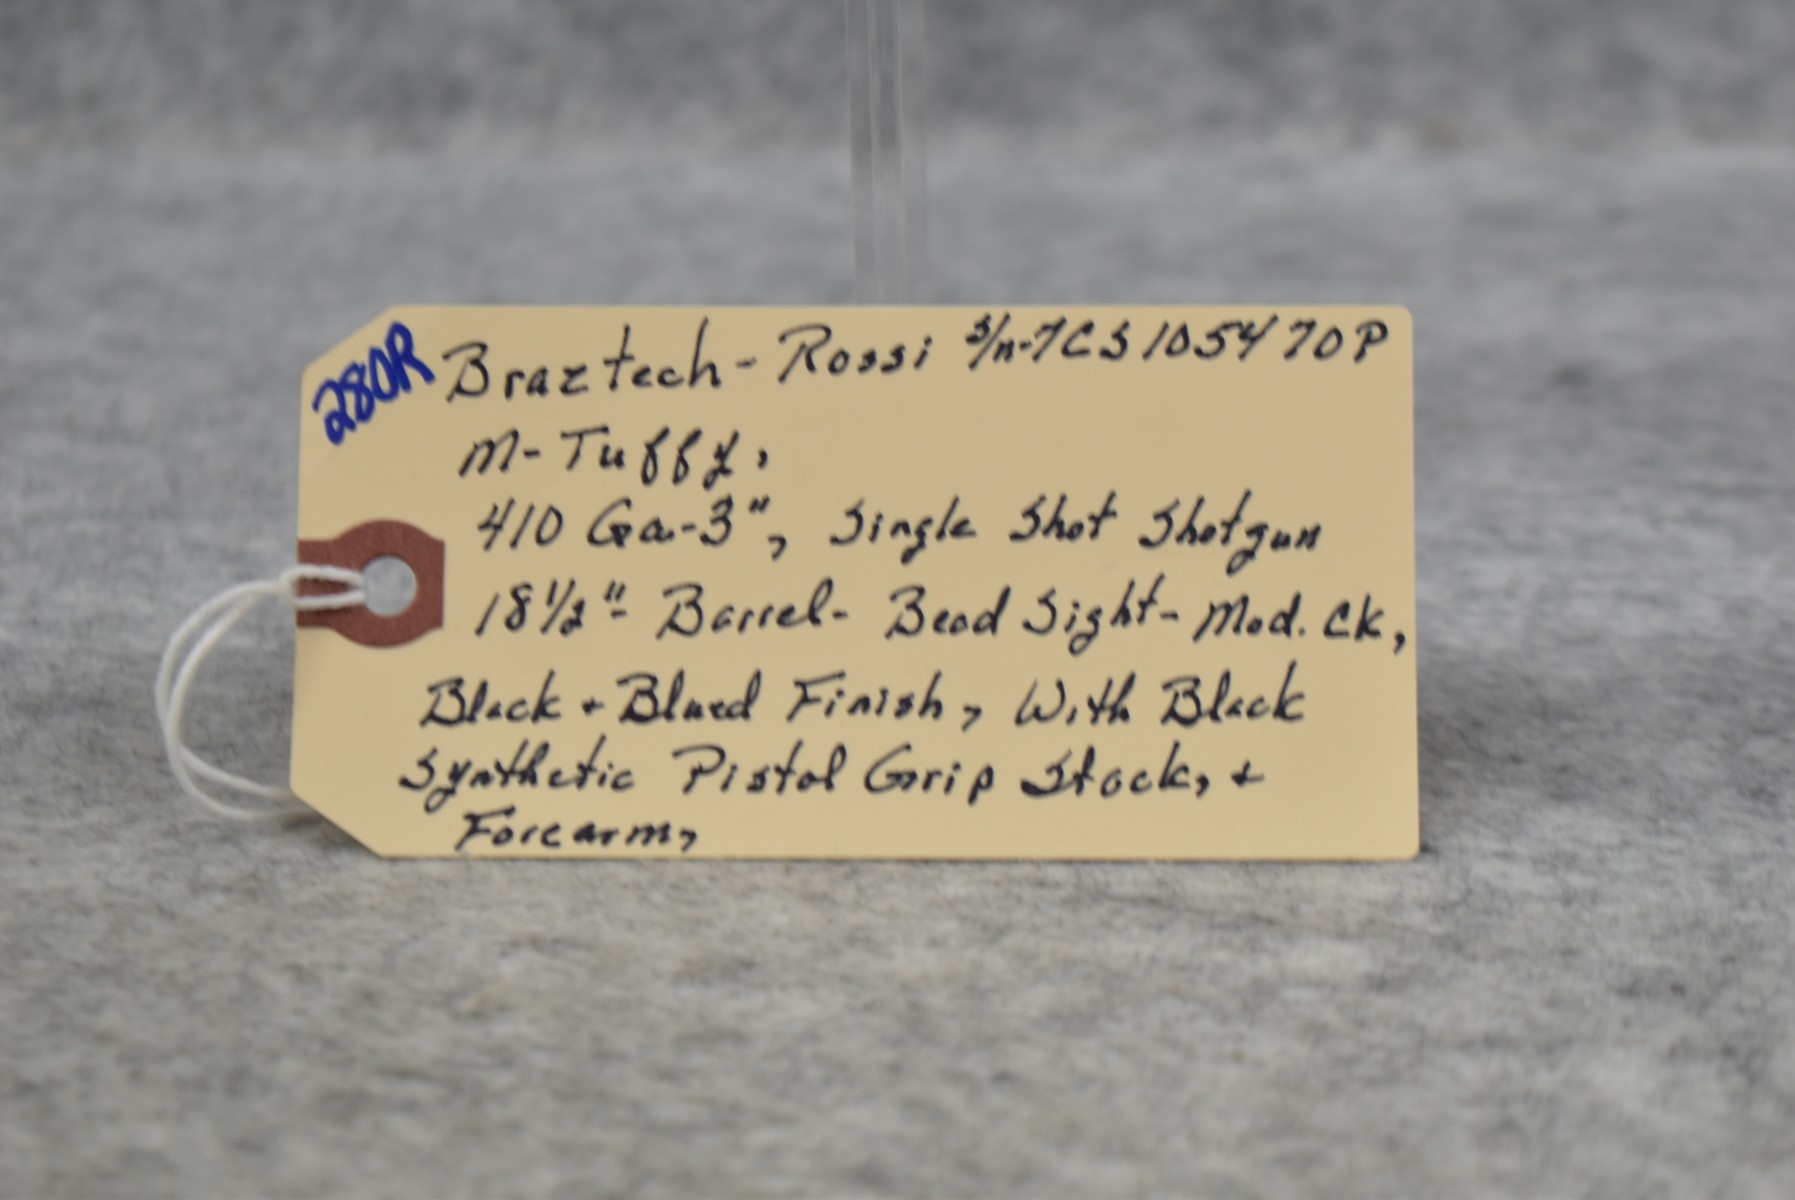 280R
Braztech - Rossi S/n-7CS105470P
M- Tuffy,
410 Ga-3", Single Shot Shotgun
18 1/2"- Barrel- Bead Sight- Mod. CK,
Black + Blued Finish, With Black
Synthetic Pistol Grip Stock, +
Forearm,